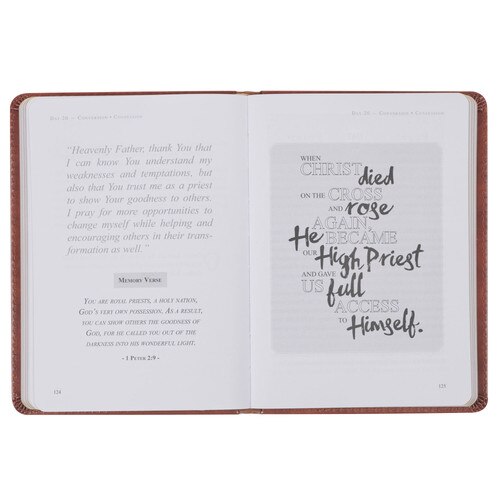 DAY 20 ~ CONVERSION • CONFESSION
"Heavenly Father, thank You that
I can know You understand my
weaknesses and temptations, but
also that You trust me as a priest
to show Your goodness to others.
I pray for more opportunities to
change myself while helping and
encouraging others in their trans-
formation as well."
MEMORY VERSE
YOU ARE ROYAL PRIESTS, A HOLY NATION,
GOD'S VERY OWN POSSESSION. AS A RESULT,
YOU CAN SHOW OTHERS THE GOODNESS OF
GOD, FOR HE CALLED YOU OUT OF THE
DARKNESS INTO HIS WONDERFUL LIGHT.
- 1 PETER 2:9 -
124
DAY 20 ~ CONVERSION • CONFESSION
WHEN
CHRIST died
ON THE CROSS
AND rose
AGAIN,
He BECAME
OUR High Priest
AND GAVE
US full
ACCESS
TO Himself.
125